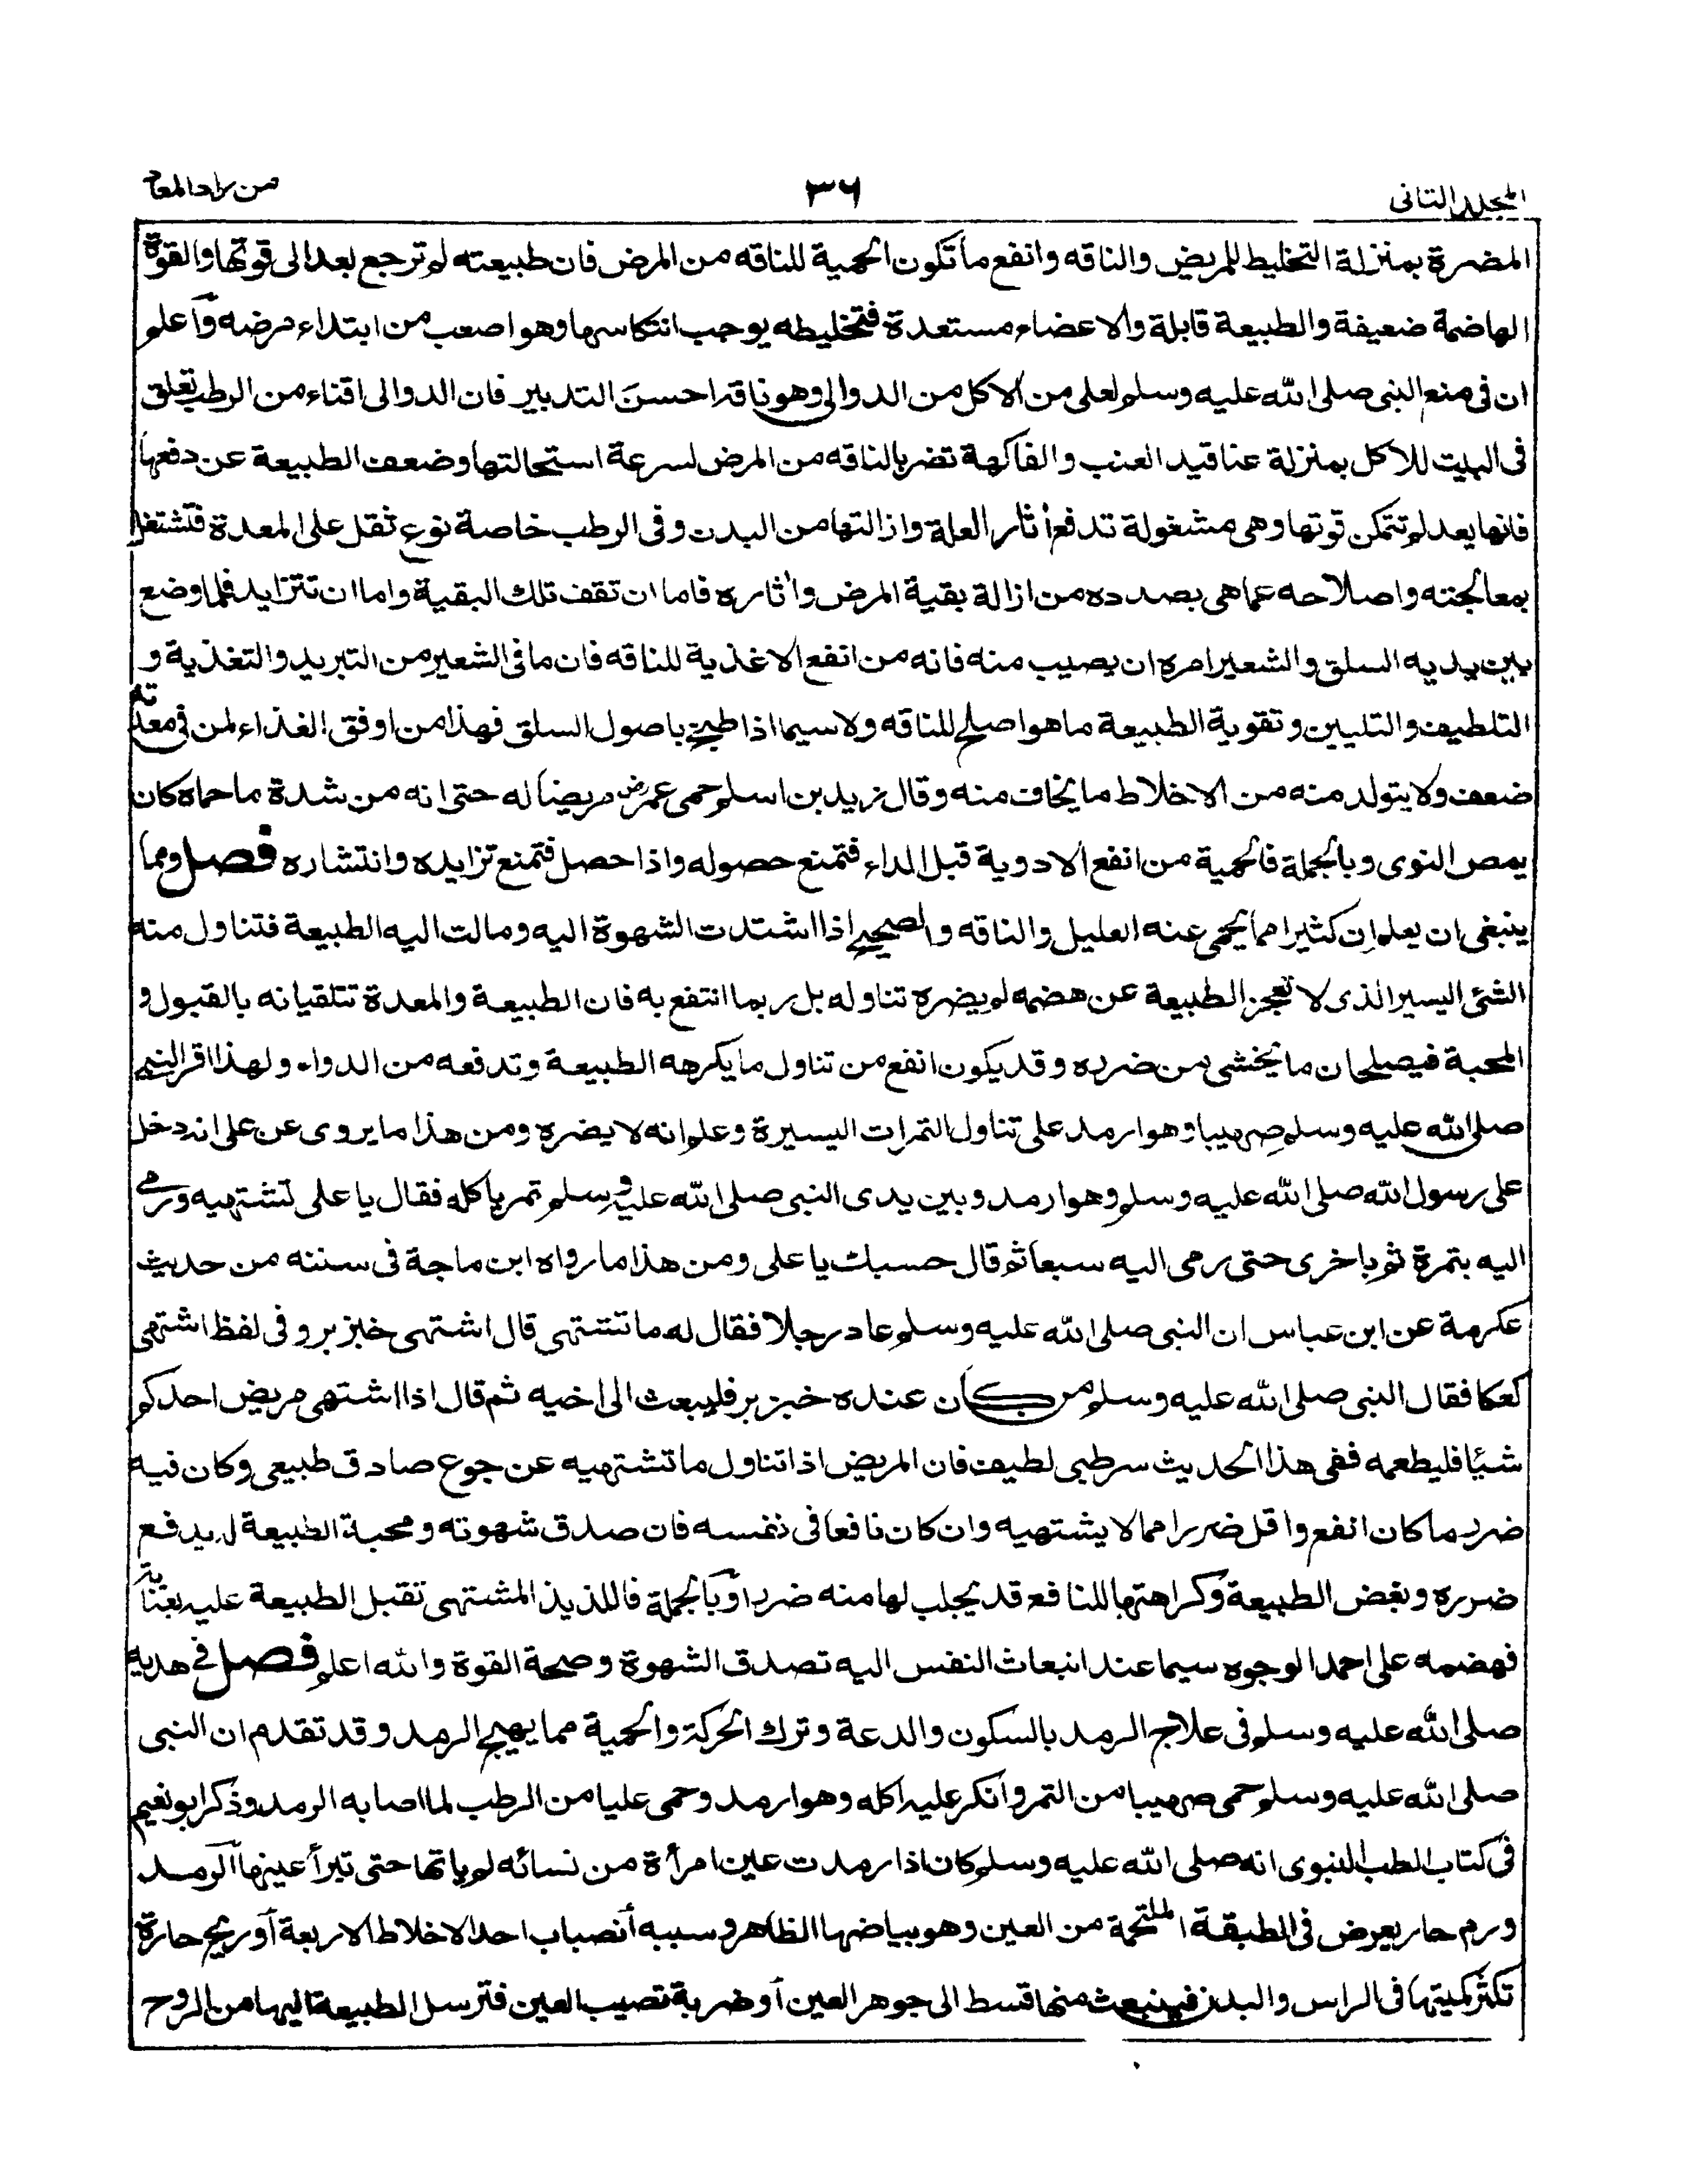 المجلد الثانى
٣٦
من زاد المعاد
المضرة بمنزلة التخليط للمريض والناقه وانفع ما تكون الحمية للناقه من المرض فان طبيعته لم ترجع بعد الى قوتها والقوة
الهاضمة ضعيفة والطبيعة قابلة والاعضاء مستعدة فتخليطه يوجب انتكاسها وهو اصعب من ابتداء مرضه واعلم
ان فى منع النبى صلى الله عليه وسلم لعلى من الاكل من الدوالى وهو ناقه احسن التدبير فان الدوالى اقناء من الرطب تعلق
فى البيت للاكل بمنزلة عناقيد العنب والفاكهة تضر بالناقه من المرض لسرعة استحالتها وضعف الطبيعة عن دفعها
فانها بعد لم تتمكن قوتها وهى مشغولة تدفع اثار العلة وازالتها من البدن وفى الرطب خاصة نوع ثقل على المعدة فتشتغل
بمعالجته واصلاحه عما هى بصدده من ازالة بقية المرض واثاره فاما ان تقف تلك البقية واما ان تتزايد فلما وضع
بين يديه السلق والشعير امره ان يصيب منه فانه من انفع الاغذية للناقه فان ما فى الشعير من التبريد والتغذية و
التلطيف والتليين وتقوية الطبيعة ما هو اصلح للناقه ولا سيما اذا طبخ باصول السلق فهذا من اوفق الغذاء لمن فى معدته
ضعف ولا يتولد منه من الاخلاط ما يخاف منه وقال زيد بن اسلم حمى عمر رض مريضا له حتى انه من شدة ما حماه كان
يمص النوى وبالجملة فالحمية من انفع الادوية قبل الداء فتمنع حصوله واذا حصل فتمنع تزايده وانتشاره فصل ومما
ينبغى ان يعلم ان كثيرا مما يحمى عنه العليل والناقه والصحيح اذا اشتدت الشهوة اليه ومالت اليه الطبيعة فتناول منه
الشئ اليسير الذى لا تعجز الطبيعة عن هضمه لم يضره تناوله بل ربما انتفع به فان الطبيعة والمعدة تتلقيانه بالقبول و
المحبة فيصلحان ما يخشى من ضرره وقد يكون انفع من تناول ما يكرهه الطبيعة وتدفعه من الدواء ولهذا اقر النبى
صلى الله عليه وسلم صهيبا وهو ارمد على تناول التمرات اليسيرة وعلم انه لا يضره ومن هذا ما يروى عن على انه دخل
على رسول الله صلى الله عليه وسلم وهو ارمد وبين يدى النبى صلى الله عليه وسلم تمر ياكله فقال يا على تشتهيه ورمى
اليه بتمرة ثم باخرى حتى رمى اليه سبعا ثم قال حسبك يا على ومن هذا ما رواه ابن ماجة فى سننه من حديث
عكرمة عن ابن عباس ان النبى صلى الله عليه وسلم عاد رجلا فقال له ما تشتهى قال اشتهى خبز بر وفى لفظ اشتهى
كعكا فقال النبى صلى الله عليه وسلم من كان عنده خبز بر فليبعث الى اخيه ثم قال اذا اشتهى مريض احدكم
شيئا فليطعمه ففى هذا الحديث سر طبى لطيف فان المريض اذا تناول ما تشتهيه عن جوع صادق طبيعى وكان فيه
ضرر ما كان انفع واقل ضررا مما لا يشتهيه وان كان نافعا فى نفسه فان صدق شهوته ومحبة الطبيعة له يدفع
ضرره وبغض الطبيعة وكراهتها للنافع قد يجلب لها منه ضررا وبالجملة فاللذيذ المشتهى تقبل الطبيعة عليه بعناية
فهضمه على احمد الوجوه سيما عند انبعاث النفس اليه تصدق الشهوة وصحة القوة والله اعلم فصل فى هديه
صلى الله عليه وسلم فى علاج الرمد بالسكون والدعة وترك الحركة والحمية مما يهيج الرمد وقد تقدم ان النبى
صلى الله عليه وسلم حمى صهيبا من التمر وانكر عليه اكله وهو ارمد وحمى عليا من الرطب لما اصابه الرمد وذكر ابو نعيم
فى كتاب الطب النبوى انه صلى الله عليه وسلم كان اذا رمدت عين امرأة من نسائه لم ياتها حتى تبرأ عينها الرمد
ورم حار يعرض فى الطبقة الملتحمة من العين وهو بياضها الظاهر وسببه أنصباب احد الاخلاط الاربعة أو ريح حارة
تكثر كميتها فى الراس والبدن فينبعث منها قسط الى جوهر العين أو ضربة تصيب العين فترسل الطبيعة اليها من الروح